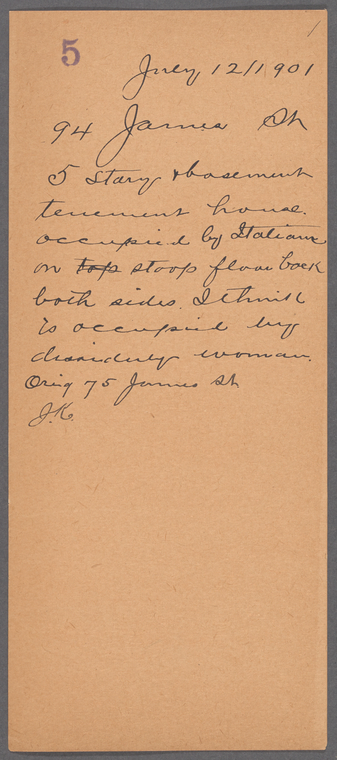 1
5
July 12/1901
94 James St
5 story & basement
tenement house.
occupied by Italians
on top stoop floor back
both sides. I think
is occupied by
disorderly woman.
Orig 75 James St
J.K.